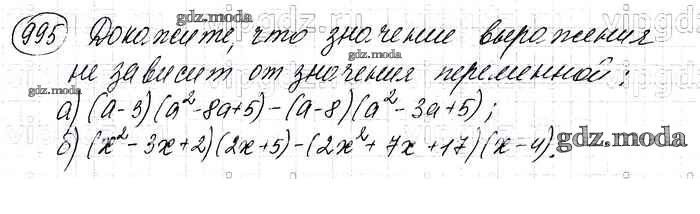 995 Докажите, что значение выражения
не зависит от значения переменной:
а) (a-3)(a²-8a+5)-(a-8)(a²-3a+5);
б) (x²-3x+2)(2x+5)-(2x²+7x+17)(x-4).
gdz.moda
gdz.moda
gdz.moda
gdz.moda
gdz.moda